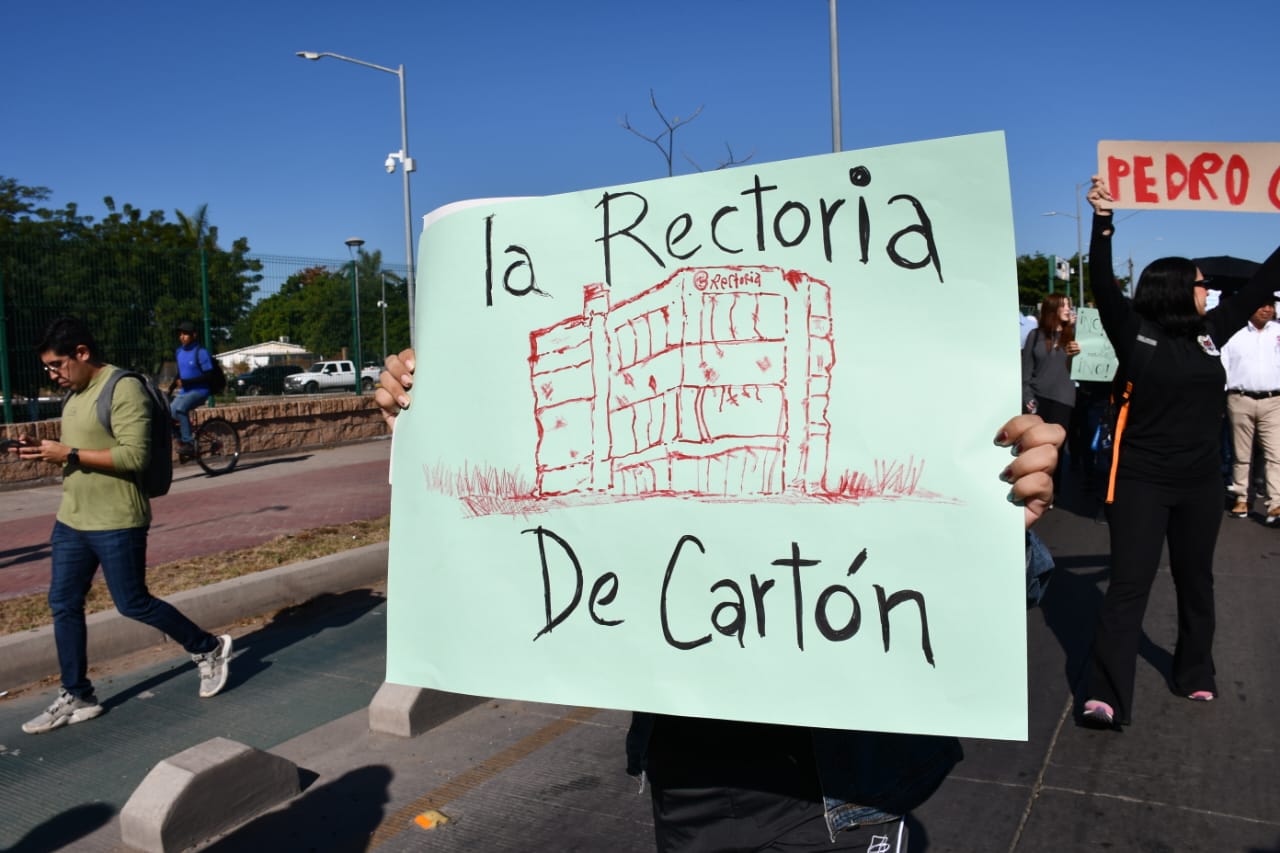 la Rectoria
Rectoria
De Cartón
PEDRO
¡NO!